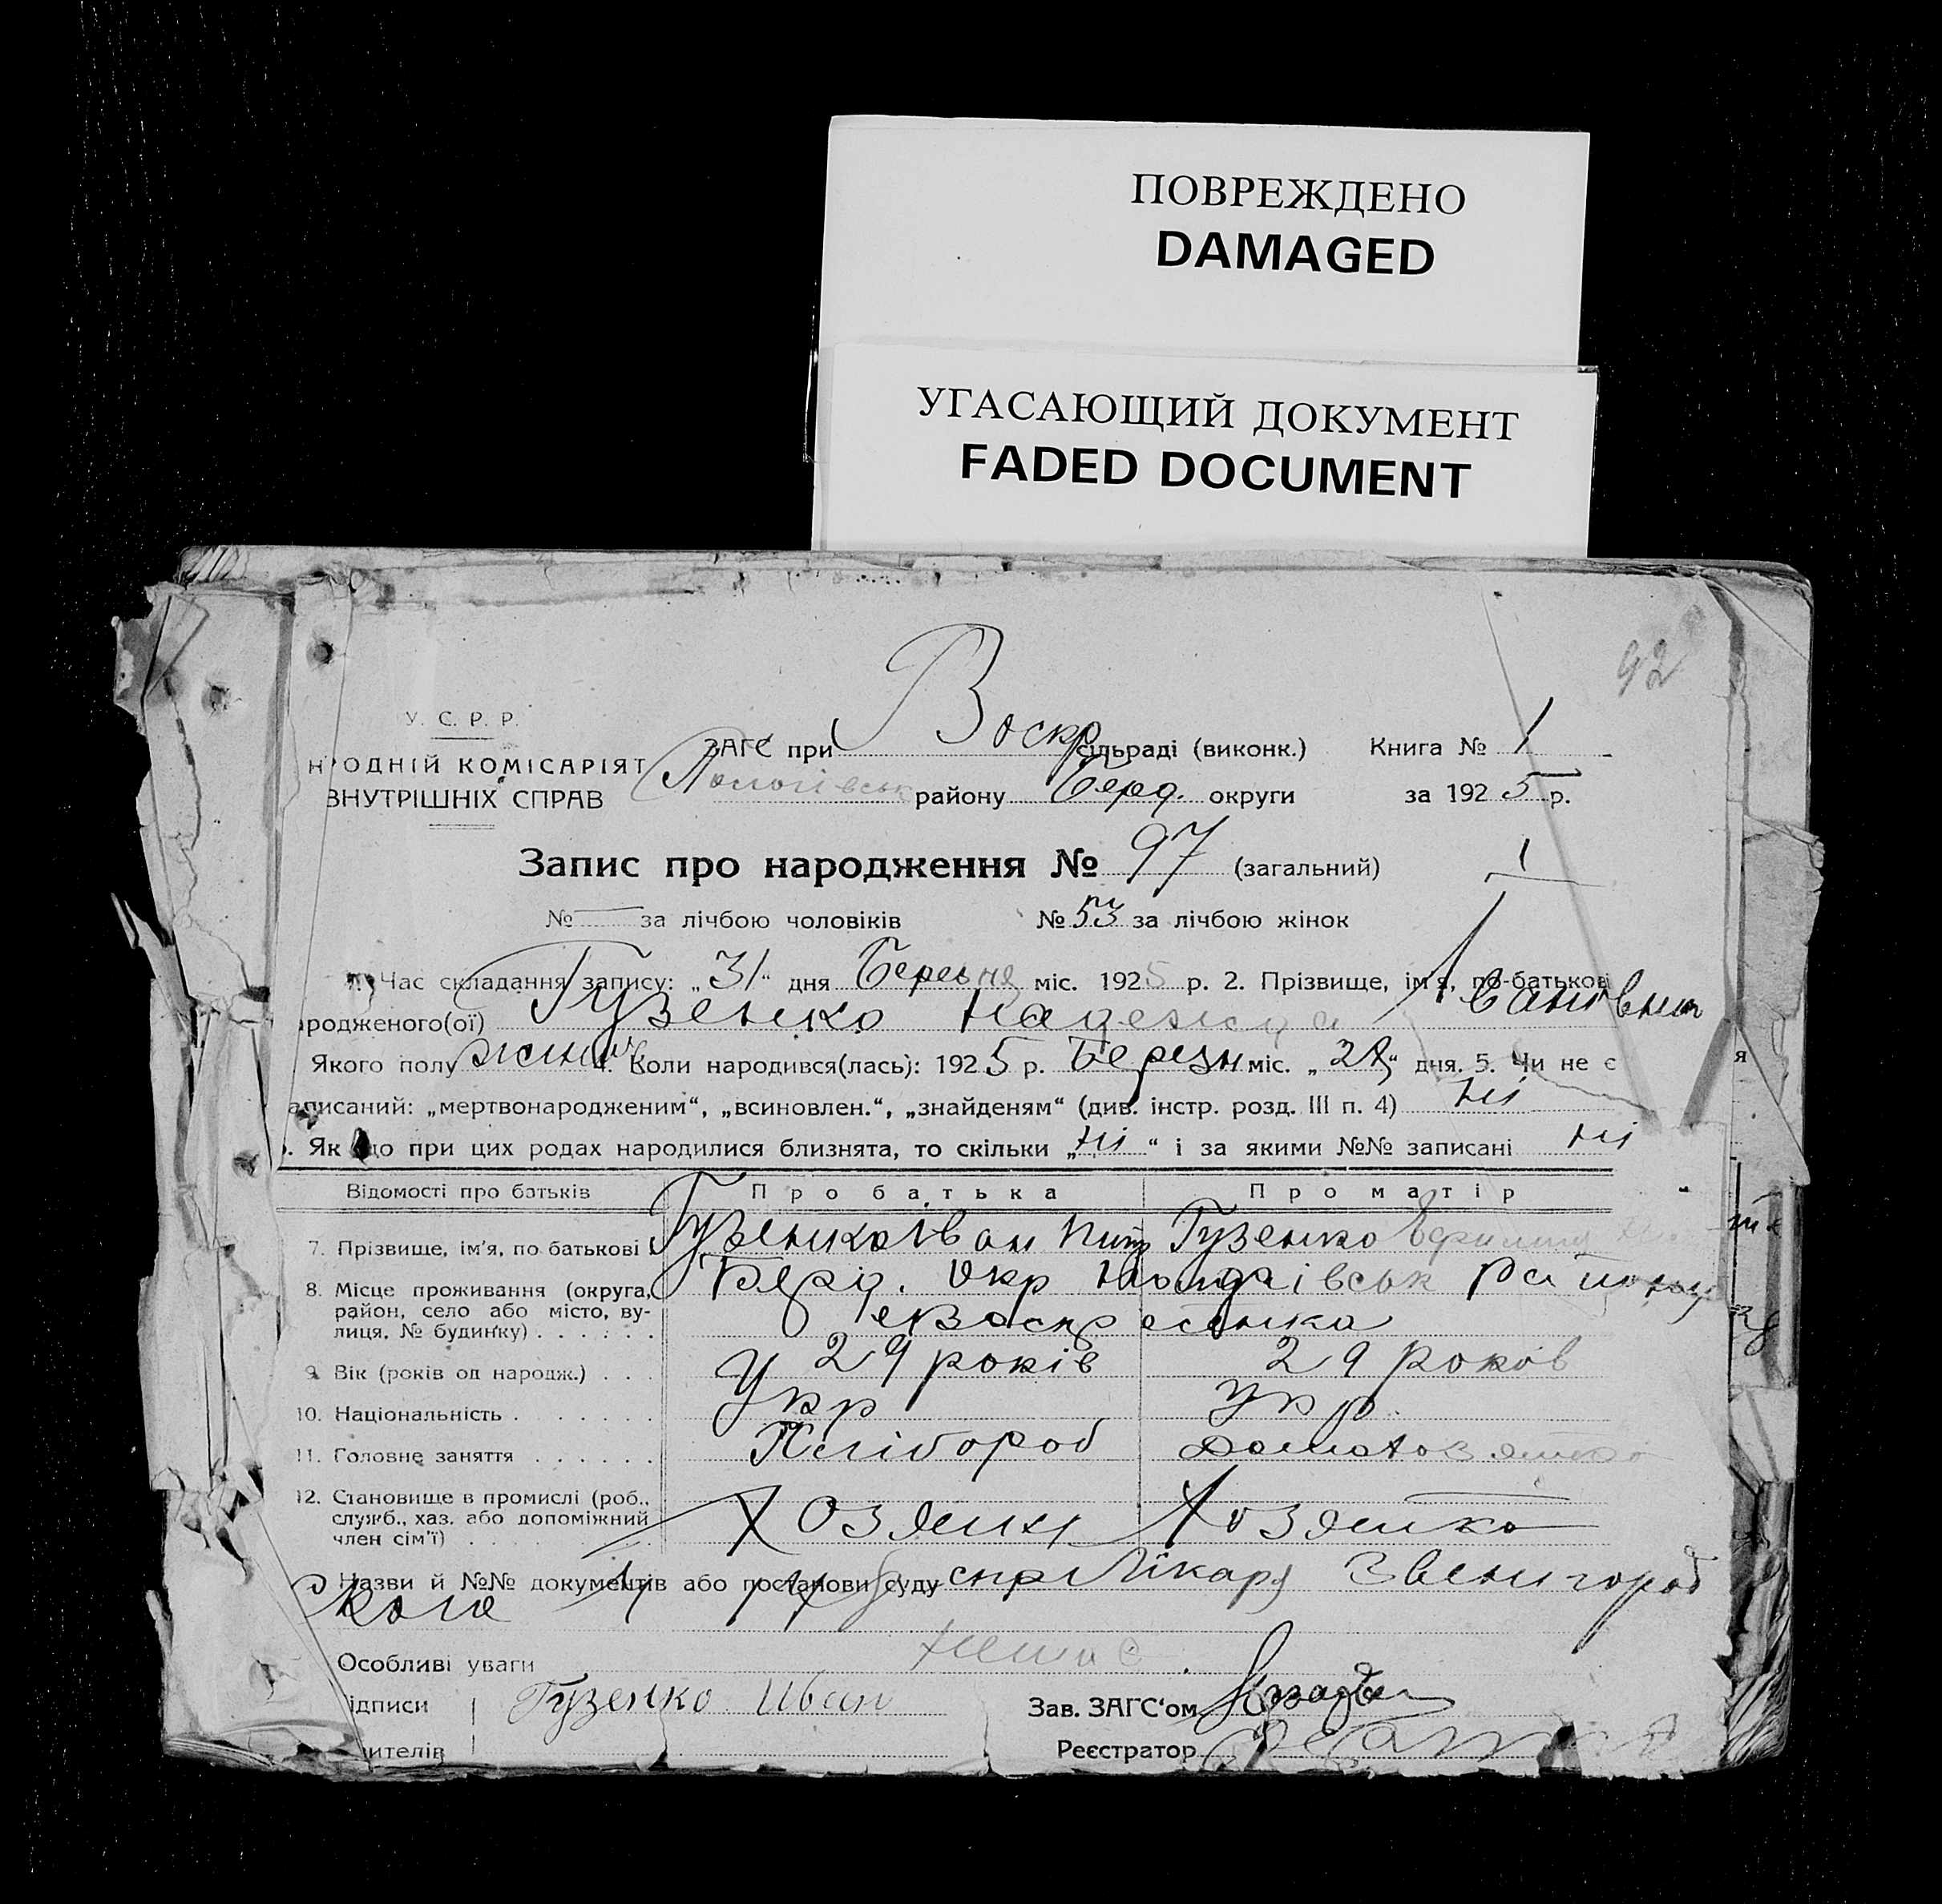 ПОВРЕЖДЕНО
DAMAGED
УГАСАЮЩИЙ ДОКУМЕНТ
FADED DOCUMENT
92
У. С. Р. Р.
НРОДНІЙ КОМІСАРІЯТ
ВНУТРІШНІХ СПРАВ
ЗАГС при Воскр сільраді (виконк.) Книга № 1
Пологівськ району Берд. округи за 1925 р.
Запис про народження № 97 (загальний) 1
№ — за лічбою чоловіків № 53 за лічбою жінок
Час складання запису: „31“ дня Березня міс. 1925 р. 2. Прізвище, ім'я, по-батькові
родженого(ої) Гузенко Надежда Івановна
Якого полу жіноч 4. Коли народився(лась): 1925 р. Березн міс. „28“ дня. 5. Чи не є
аписаний: „мертвонародженим“, „всиновлен.“, „знайденям“ (див. інстр. розд. III п. 4) ні
. Як що при цих родах народилися близнята, то скільки „ні“ і за якими №№ записані ні
Відомості про батьків Про батька Про матір
7. Прізвище, ім'я, по батькові Гузенко Іван Гузенко
8. Місце проживання (округа, район, село або місто, ву-лиця, № будинку) Берд. Окр Пологівськ району
Воскресенка
9. Вік (років од народж.) 29 років 29 роков
10. Національність Укр Укр.
11. Головне заняття Хлібороб домохозяйка
12. Становище в промислі (роб., служб., хаз. або допоміжний член сім'ї) Хозяин Хозяйка
Назви й №№ документів або постанови суду Лікаря Звенигород
ского
Особливі уваги немає.
ідписи Гузенко Иван Зав. ЗАГС'ом
ителів Реєстратор